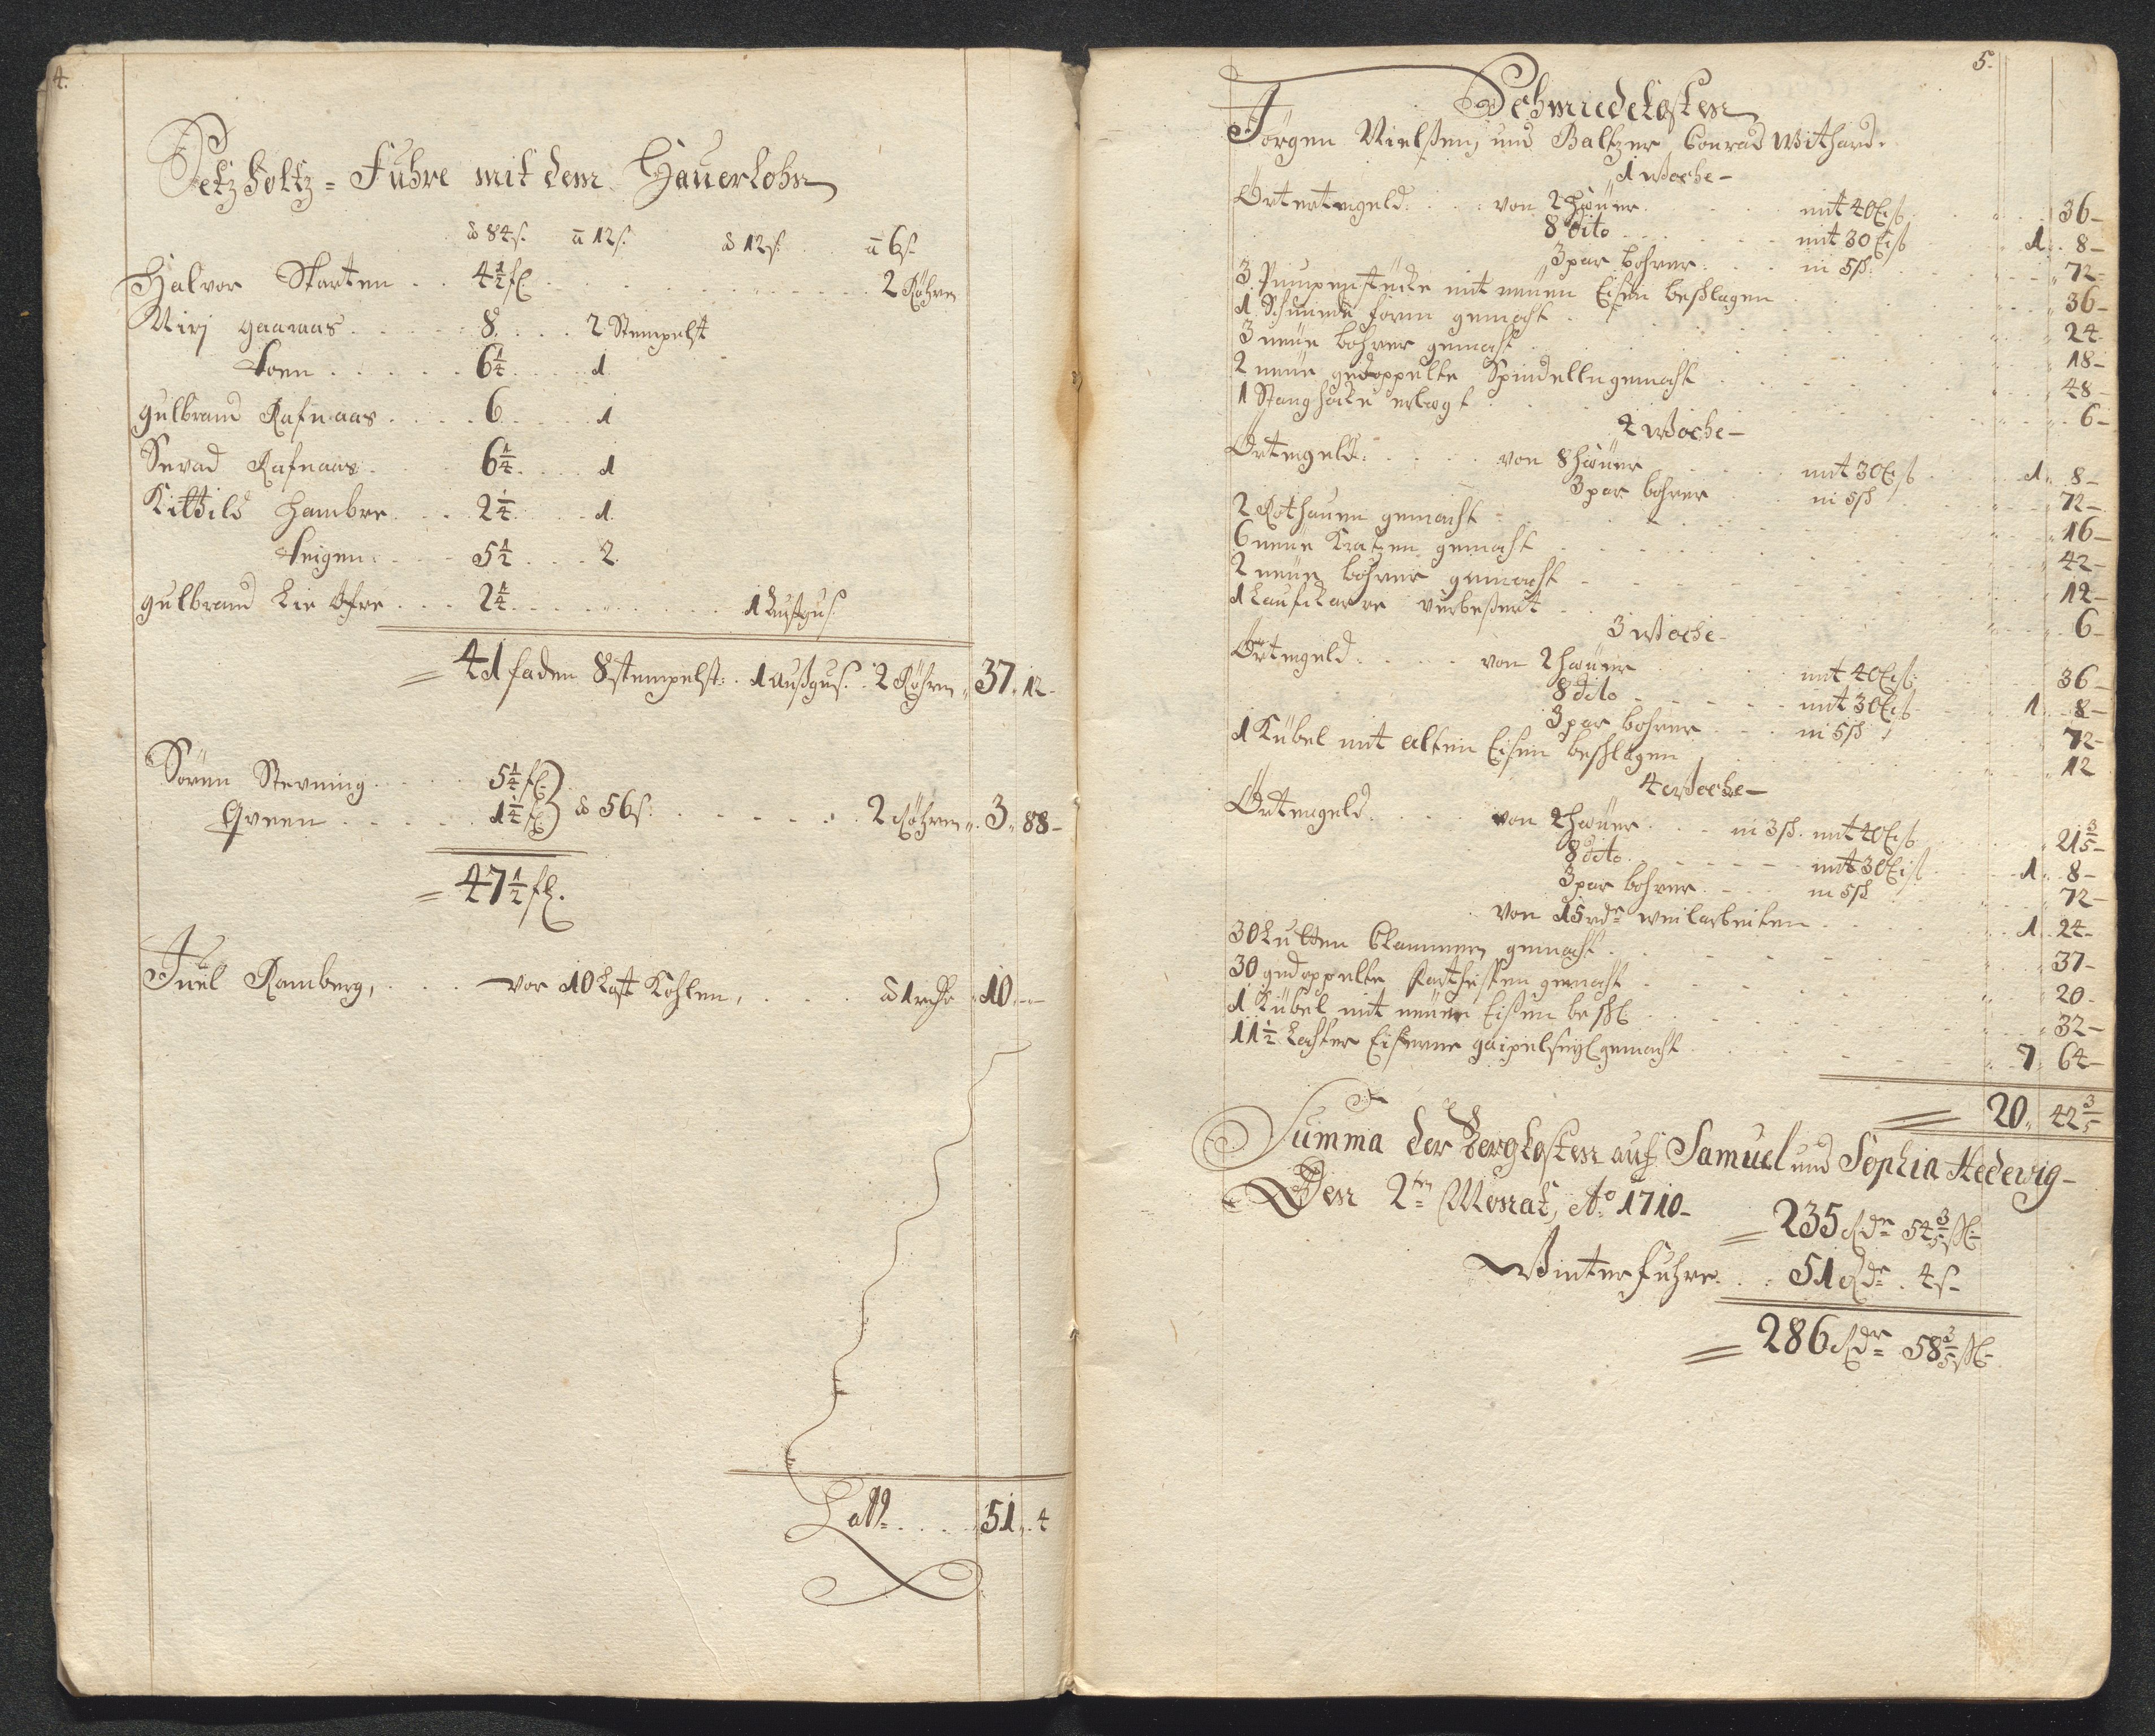 4.
Setzholtz = Fuhre mit dem Hauerlohn
à 84 s. à 12 s. à 12 s. à 6 s.
Halvor Skarten . . 4 1/2 fl . . . . . . 2 Röhren
Niri gaaraas . . . . . 8 . . . . 2 Stempelst
Foen . . . . . 6 1/4 . . . . 1
gulbrand Rafnaas . . . . 6 . . . . 1
Sevad Rafnaas . . . 6 1/4 . . . . 1
Kittild Hambre . . . 2 1/4 . . . . 1
Teigen . . . . 5 1/2 . . . . 2
gulbrand Lie Øfre . . . 2 1/4 . . . . . . . . 1 Außguß
= 41 faden 8 stempelst: . 1 Außguß . 2 Röhren „ 37 „ 12 -
Sören Stevning . . . . 5 1/4 fl
Qveen . . . . . 1 1/4 fl à 56 s: . . . . . . . 2 Röhren „ 3 „ 88 -
= 47 1/2 fl.
Juel Ramberg, . . . vor 10 Last Kohlen, . . . . à 1 rdr 10 - -
Latt . . . . 51 „ 4
5.
Schmiedekosten
Jörgen Nielßen, und Baltzer Conrad Withard.
1 Woche -
von 2 Häuer . . . mit 40 Eiß . . . 36 -
8 dito . . . mit 30 Eiß . . . 1 „ 8 -
3 par bohrer . . . in 5 ß . . . 72 -
3 Pumpenstücke mit neuen Eisen beschlagen . . . 36 -
1 Schmiede form gemacht . . . 24
3 neue bohrer gemacht . . . 18 -
2 neue gedoppelte Spindelln gemacht . . . 48 -
1 Stanghacke . . . 6 -
2 Woche -
Örtergeld . . . von 8 Häuer . . . mit 30 Eiß . . . 1 „ 8 -
3 par bohrer . . . in 5 ß . . . 72 -
2 gemacht . . . 16 -
6 neue Kratzen gemacht . . . 42 -
2 neue bohrer gemacht . . . 12 -
1 Laufkarre verbeßert . . . 6 -
3 Woche -
Örtergeld . . . von 2 Häuer . . . mit 40 Eiß . . . 36 -
8 dito . . . mit 30 Eiß . . . 1 „ 8 -
3 par bohrer . . . in 5 ß . . . 72 -
1 Kübel mit alten Eisen beschlagen . . . 12
4 Woche -
Örtergeld . . . von 2 Häuer . . . in 3 ß. mit 40 Eiß . . . 21 3/5 -
8 dito . . . mit 30 Eiß . . . 1 „ 8 -
3 par bohrer . . . in 5 ß . . . 72 -
von 15 . . . 1 „ 24 -
30 Lutten Clammern gemacht . . . 37 -
30 gedoppelte gemacht . . . 20 -
1 Kübel mit neuen Eißen beschl. . . . 32 -
11 1/2 Lachter Eiserne gaipelseyl gemacht . . . 7 „ 64 -
= 20 „ 42 3/5
Summa der Bergkosten auf Samuel und Sophia Hedewig -
Den 2ten Monat, Ao 1710 -
= 235 Rdr 54 3/5 ßl -
Winterfuhre . . : 51 Rdr . 4 s -
= 286 Rdr 58 3/5 ßl -